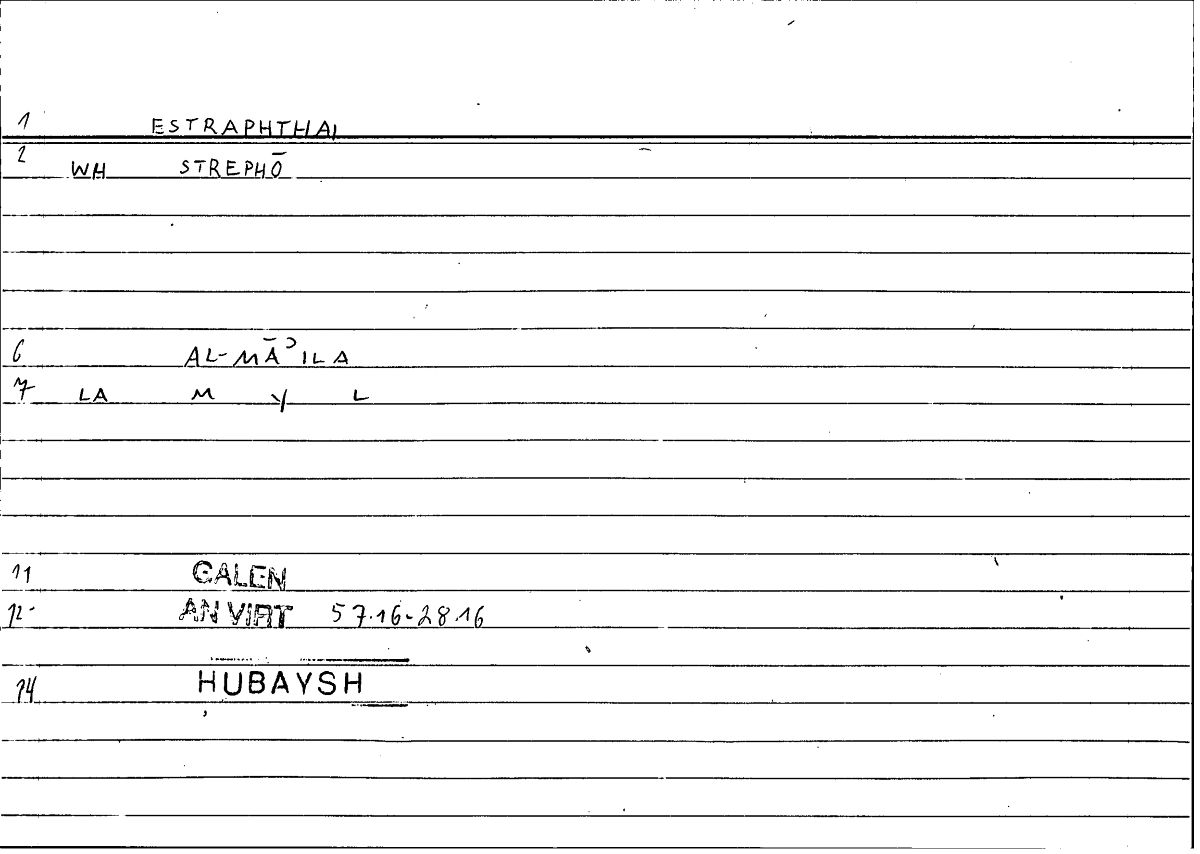 1 ESTRAPHTHAI
2 WH STREPHŌ
6 AL-MĀʾILA
7 LA M Y L
11 GALEN
12 AN VIRT 57.16-28.16
14 HUBAYSH